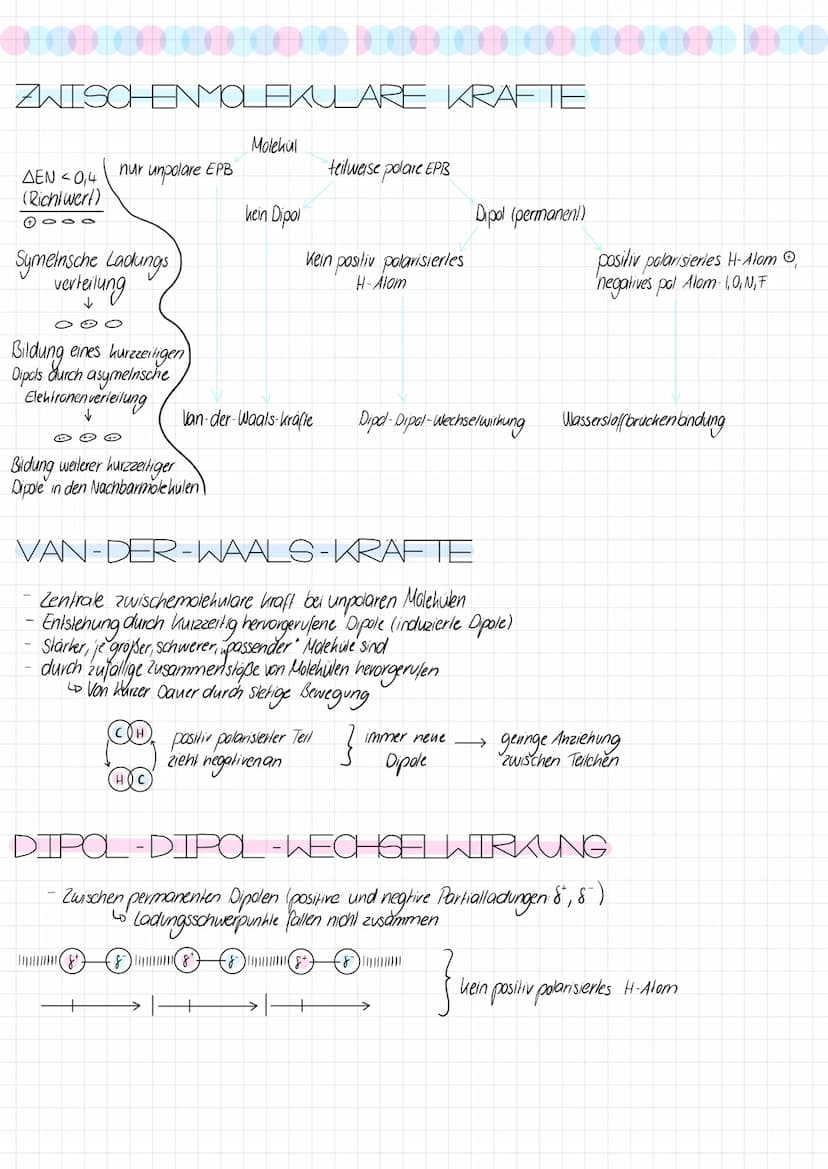 ZWISCHENMOLEKULARE KRÄFTE
Molekül
nur unpolare EPB
teilweise polare EPB
kein Dipol
Dipol (permanent)
kein positiv polarisiertes
H-Atom
positiv polarisiertes H-Atom ⊕,
negatives pol Atom: 1,O,N,F
Van-der-Waals-Kräfte
Dipol-Dipol-Wechselwirkung
Wasserstoffbrückenbindung
ΔEN < 0,4
(Richtwert)
Symetrische Ladungs
verteilung
↓
Bildung eines kurzzeitigen
Dipols durch asymetrische
Elektronenverteilung
↓
Bildung weiterer kurzzeitiger
Dipole in den Nachbarmolekülen
VAN-DER-WAALS-KRÄFTE
- Zentrale zwischemolekulare Kraft bei unpolaren Molekülen
- Entstehung durch kurzzeitig hervorgerufene Dipole (induzierte Dipole)
- Stärker, je größer, schwerer, „passender" Moleküle sind
- durch zufällige Zusammenstöße von Molekülen hervorgerufen
↳ Von kurzer Dauer durch stetige Bewegung
C H
H C
positiv polarisierter Teil
zieht negativen an
immer neue
Dipole
→ geringe Anziehung
zwischen Teilchen
DIPOL-DIPOL-WECHSELWIRKUNG
- Zwischen permanenten Dipolen (positive und negtive Partialladungen: δ⁺, δ⁻)
↳ Ladungsschwerpunkte fallen nicht zusammen
δ⁺ δ⁻ δ⁺ δ⁻ δ⁺ δ⁻
kein positiv polarisiertes H-Atom